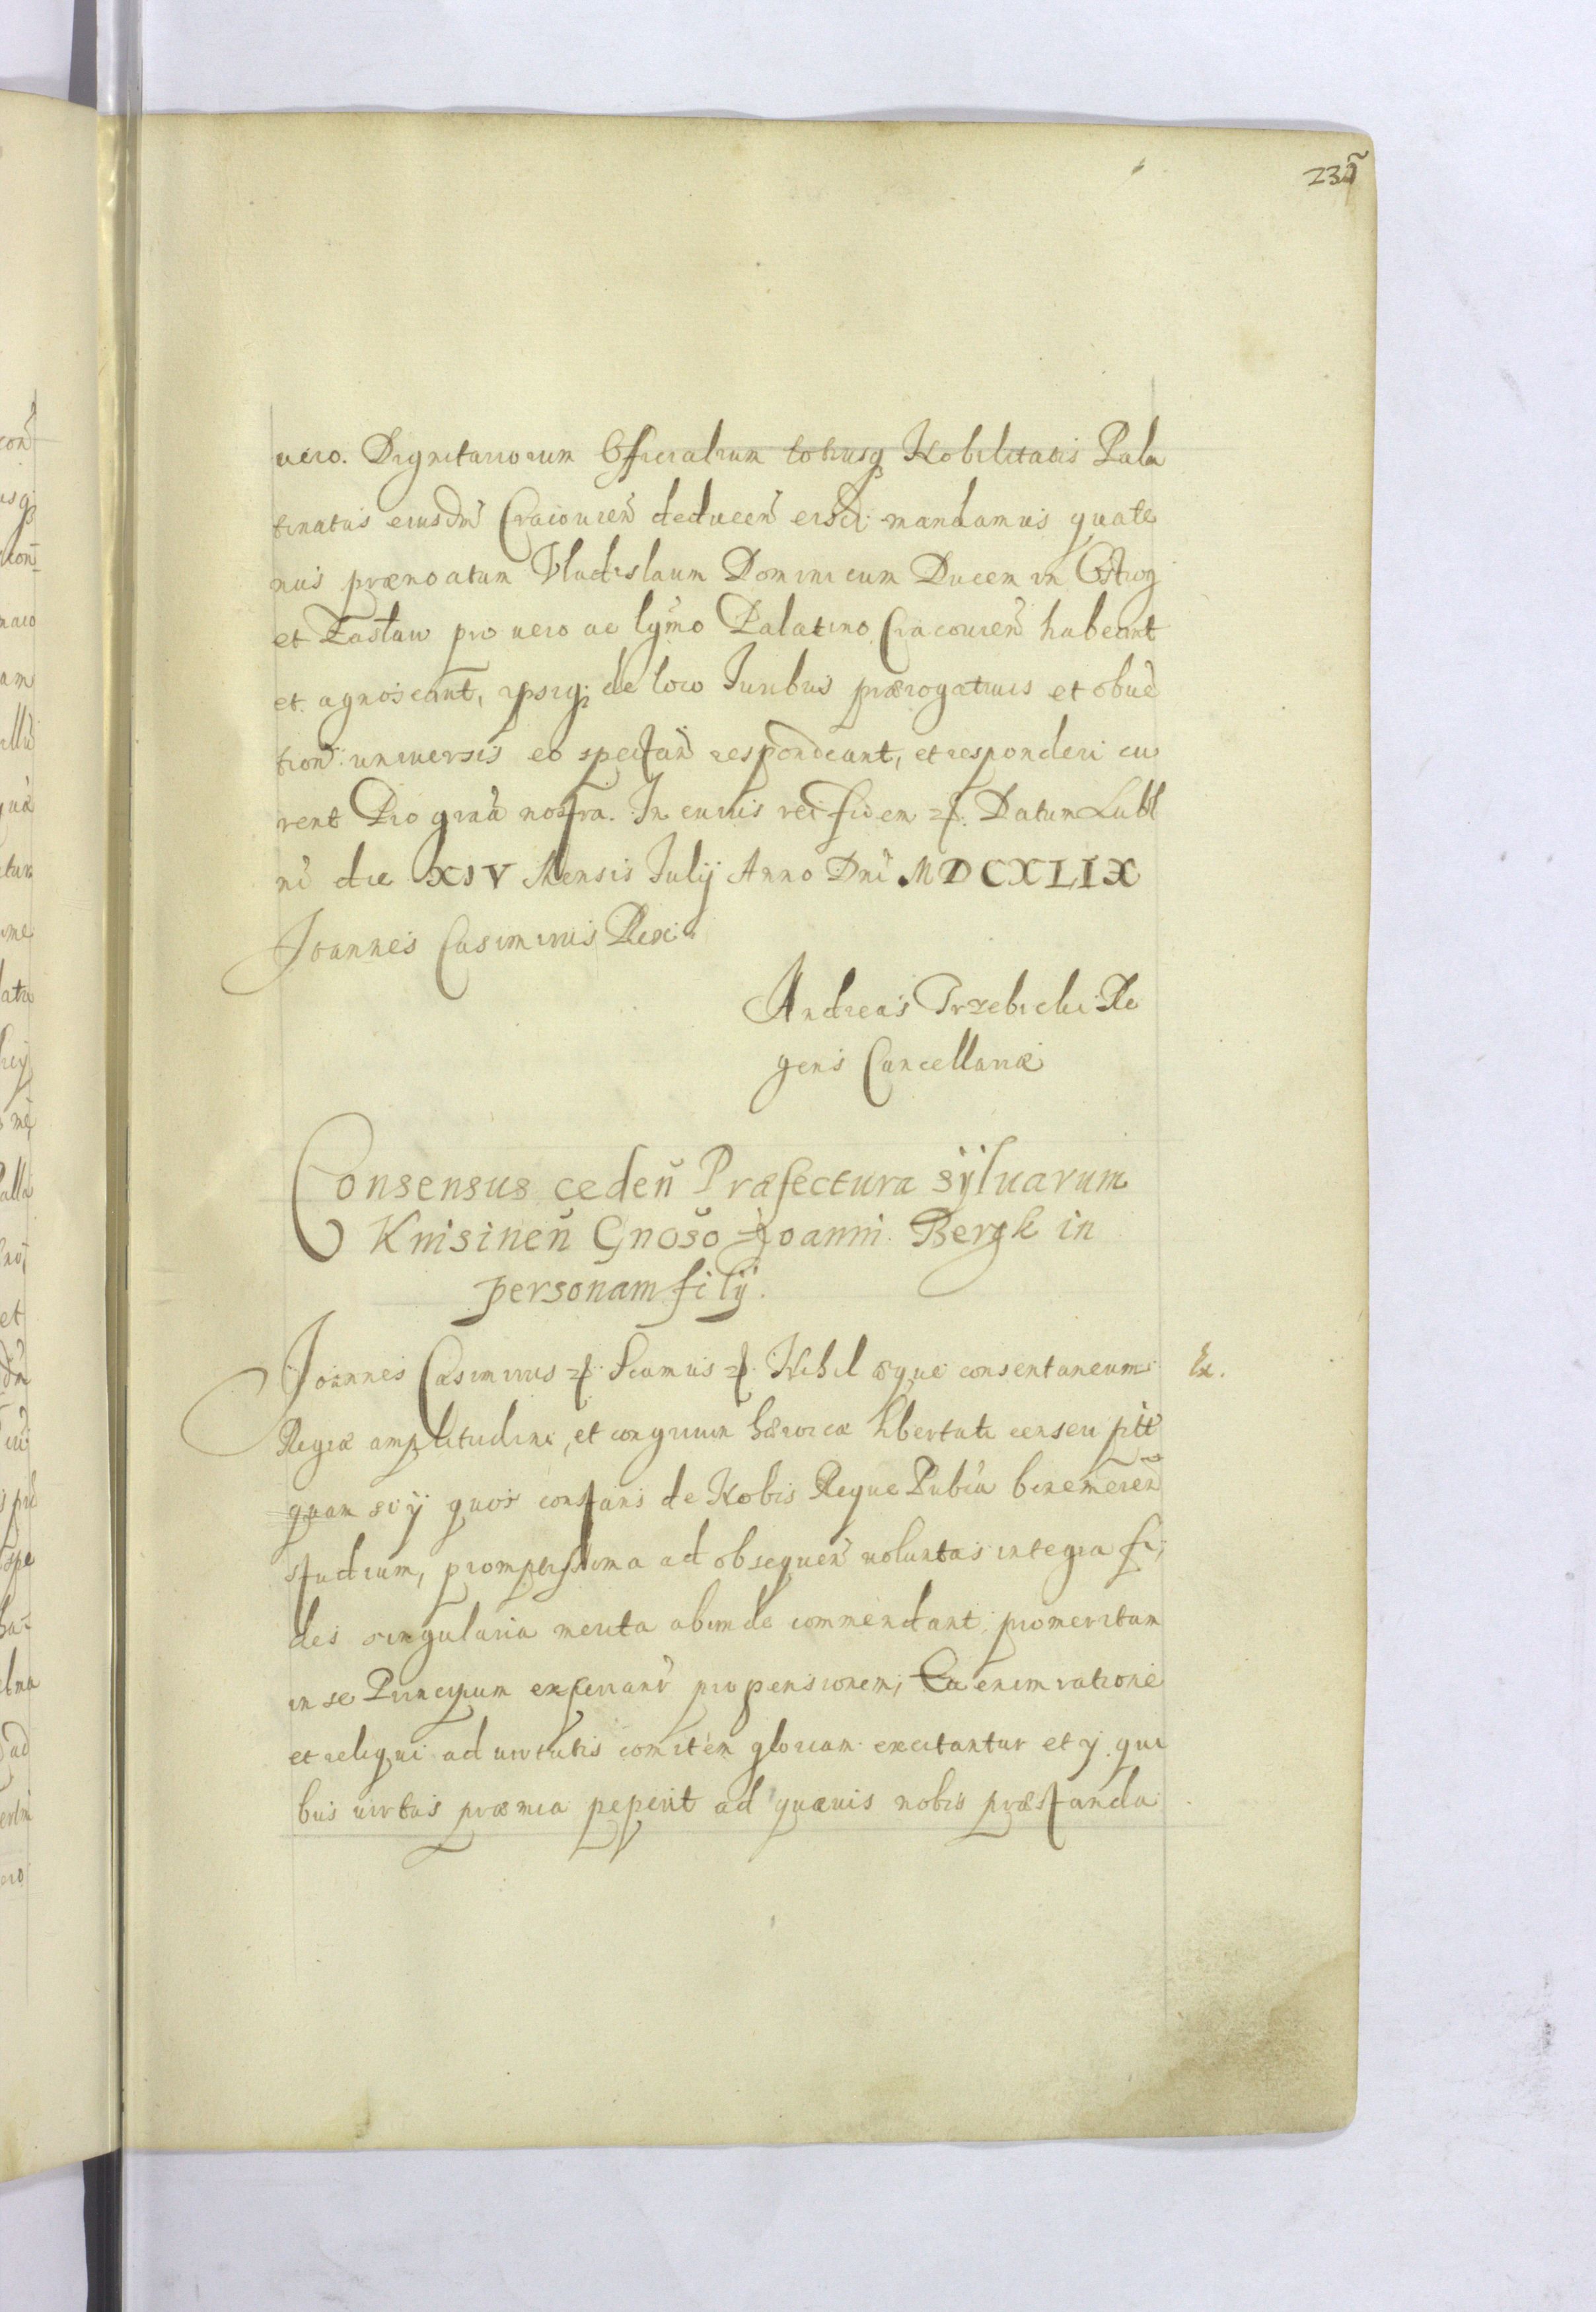 uero. Dignitariorum Officialium totiusq Nobilitatis Pala
tinatus eiusdm Cracouien deducen eisd: mandamus quate
nus prænoatum Vladislaum Dominicum Ducem in Ostrog
et Zaslaw pro uero ac lgmo Palatino Cracouien habeant
et agnoscant, ipsiq; de loco Iuribus prærogatiuis et obue
tion: uniuersis eo spectan respondeant, et responderi cu
rent Pro graa nostra. In cuius rei fidem etc. Datum Lubl
ni die XIV Mensis Iulij Anno Dni MDCXLIX
Joannes Casimirus Rex
Andreas Trzebicki Re
gens Cancellariæ
Consensus ceden Præfectura sÿluarum
Knisinen Gnoso Joanni Bergk in
personam filij.
Joannes Casimirus etc. Sicamus etc. Nihil æque consentaneum Ex.
Regiæ amplitudini, et congruum hæroicæ libertati censeri ptt
quam si ij quos constans de Nobis Reque Pubca benemeren
studium, promptissima ad obsequen uoluntas integra fi,
des singularia merita abunde commendant, promeritam
in se Principum experianr propensionem, Ea enim ratione
et reliqui ad uirtutis comitem gloriam excitantur et ij qui
bus uirtus præmia peperit ad quæuis nobis præstanda